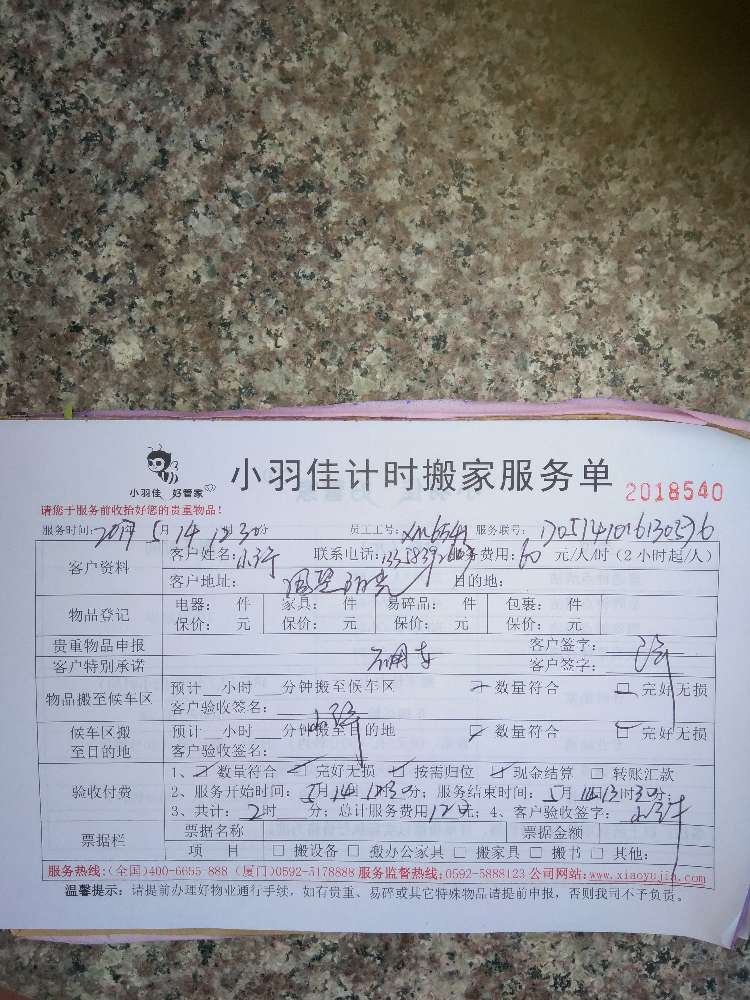 小羽佳 好管家
小羽佳计时搬家服务单
2018540
请您于服务前收拾好您的贵重物品!
服务时间: 2017年5月14日12时30分 员工工号: 服务联号:
客户资料
客户姓名: 联系电话: 服务费用: 60 元/人/时(2小时起/人)
客户地址: 目的地:
物品登记
电器: 件 家具: 件 易碎品: 件 包裹: 件
保价: 元 保价: 元 保价: 元 保价: 元
贵重物品申报 客户签字:
客户特别承诺 客户签字:
物品搬至候车区
预计__小时__分钟搬至候车区 数量符合 完好无损
客户验收签名:
候车区搬至目的地
预计__小时__分钟搬至目的地 数量符合 完好无损
客户验收签名:
验收付费
1、数量符合 完好无损 按需归位 现金结算 □ 转账汇款
2、服务开始时间: 5月14日12时30分; 服务结束时间: 5月14日13时30分;
3、共计: 2时 分; 总计服务费用120元; 4、客户验收签字:
票据栏
票据名称 票据金额
项 目 □ 搬设备 □ 搬办公家具 □ 搬家具 □ 搬书 □ 其他:
服务热线:(全国)400-6655 888 (厦门)0592-5178888 服务监督热线:0592-5888123 公司网站:www.xiaoyujia.com
温馨提示: 请提前办理好物业通行手续, 如有贵重、易碎或其它特殊物品请提前申报, 否则我司不予负责。